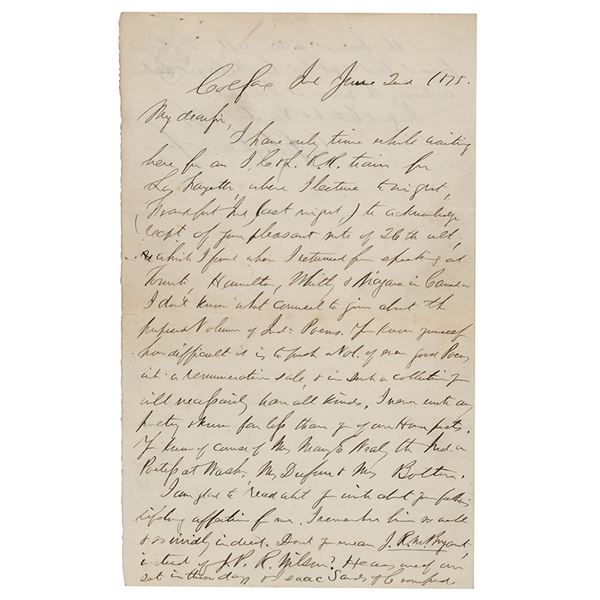 Colfax Ind June 2nd 1875.
My dear sir,
I have only time while waiting
here for an I, C & L. R.R. train for
La Fayette, where I lecture to-night,
(Frankfort Ind, last night,) to acknowledge
recpt of your pleasant note of 26th ult,
which I found when I returned from speaking at
Toronto Hamilton, Whitby & Niagara in Canada
I don't know what counsel to give about the
proposed Volume of Ind: Poems. You know yourself
how difficult it is to push a Vol. of even good Poems
into a remunerative sale, & in such a collection you
will necessarily have all kinds. I never write any
poetry & know far less than you of our Home poets.
You know of course of Mrs Mary E Nealy the Indiana
Poetess at Wash, Mrs Dufour & Mrs Bolton.
I am glad to read what you write about your father's
lifelong affection for me. I remember him so well
& so vividly indeed. Dont you mean J. R. McBryant,
instead of J. P. R. Wilson? He was one of our
set in those days & Isaac Sands & Crawford